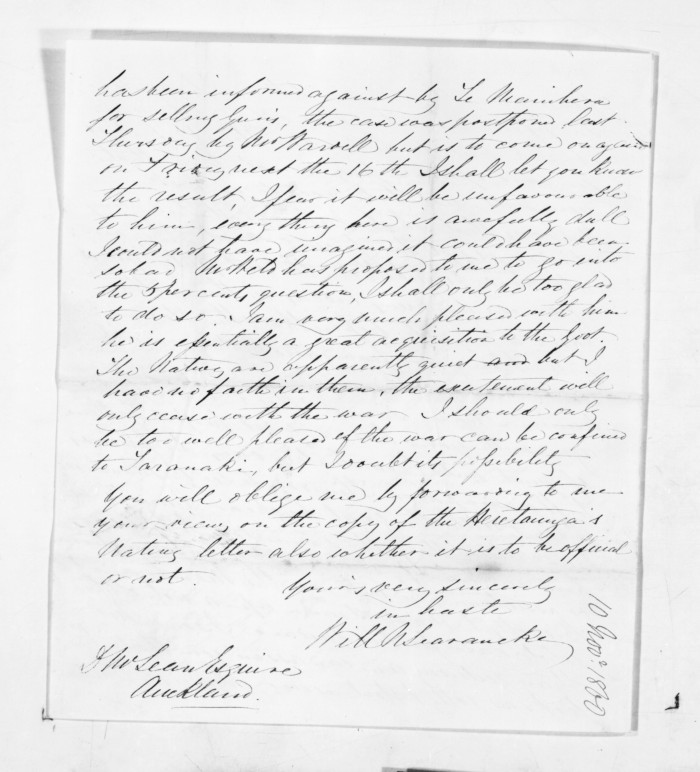 has been informed against by Te Manihera
for selling Guns, the case was postpond last
Thursday by Mr Wardell but is to come on again
on Friday next the 16th I shall let you know
the result, I fear it will be unfavourable
to him, every thing here is awefully dull
I could not have imagined it could have been
so bad Mr Weld has proposed to me to go into
the 5 per cents question, I shall only be too glad
to do so. I am very much pleased with him
he is essentially a great acquisition to the Govt.
The Natives are apparently quiet and but I
have no faith in them, the excitement will
only cease with the war. I should only
be too well pleased if the war can be confined
to Taranaki, but I doubt its possibility
You will oblige me by forwarding to me
your views on the copy of the Heretaunga's
Natives letter also whether it is to be official
or not.
Yours very sincerely
in haste
Will N Searancke
D McLean Esquire
Auckland.
10 Novr. 1860